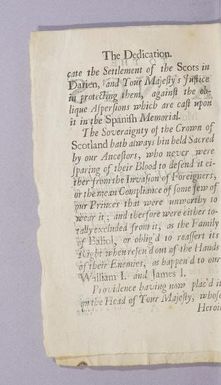 The Dedication.
cate the Settlement of the Scots in
Darien, and Your Majesty's Justice
in protecting them, against the ob-
lique Aspersions which are cast upon
it in the Spanish Memorial.
The Soveraignty of the Crown of
Scotland hath always bin held Sacred
by our Ancestors, who never were
sparing of their Blood to defend it ei-
ther from the Invasion of Foreigners,
or the mean Compliance of some few of
our Princes that were unworthy to
wear it; and therefore were either to-
tally excluded from it, as the Family
of Baliol, or oblig'd to reassert its
Right when rescu'd out of the Hands
of their Enemies, as happen'd to our
William I. and James I.
Providence having now plac'd it
on the Head of Your Majesty, whose
Heroi